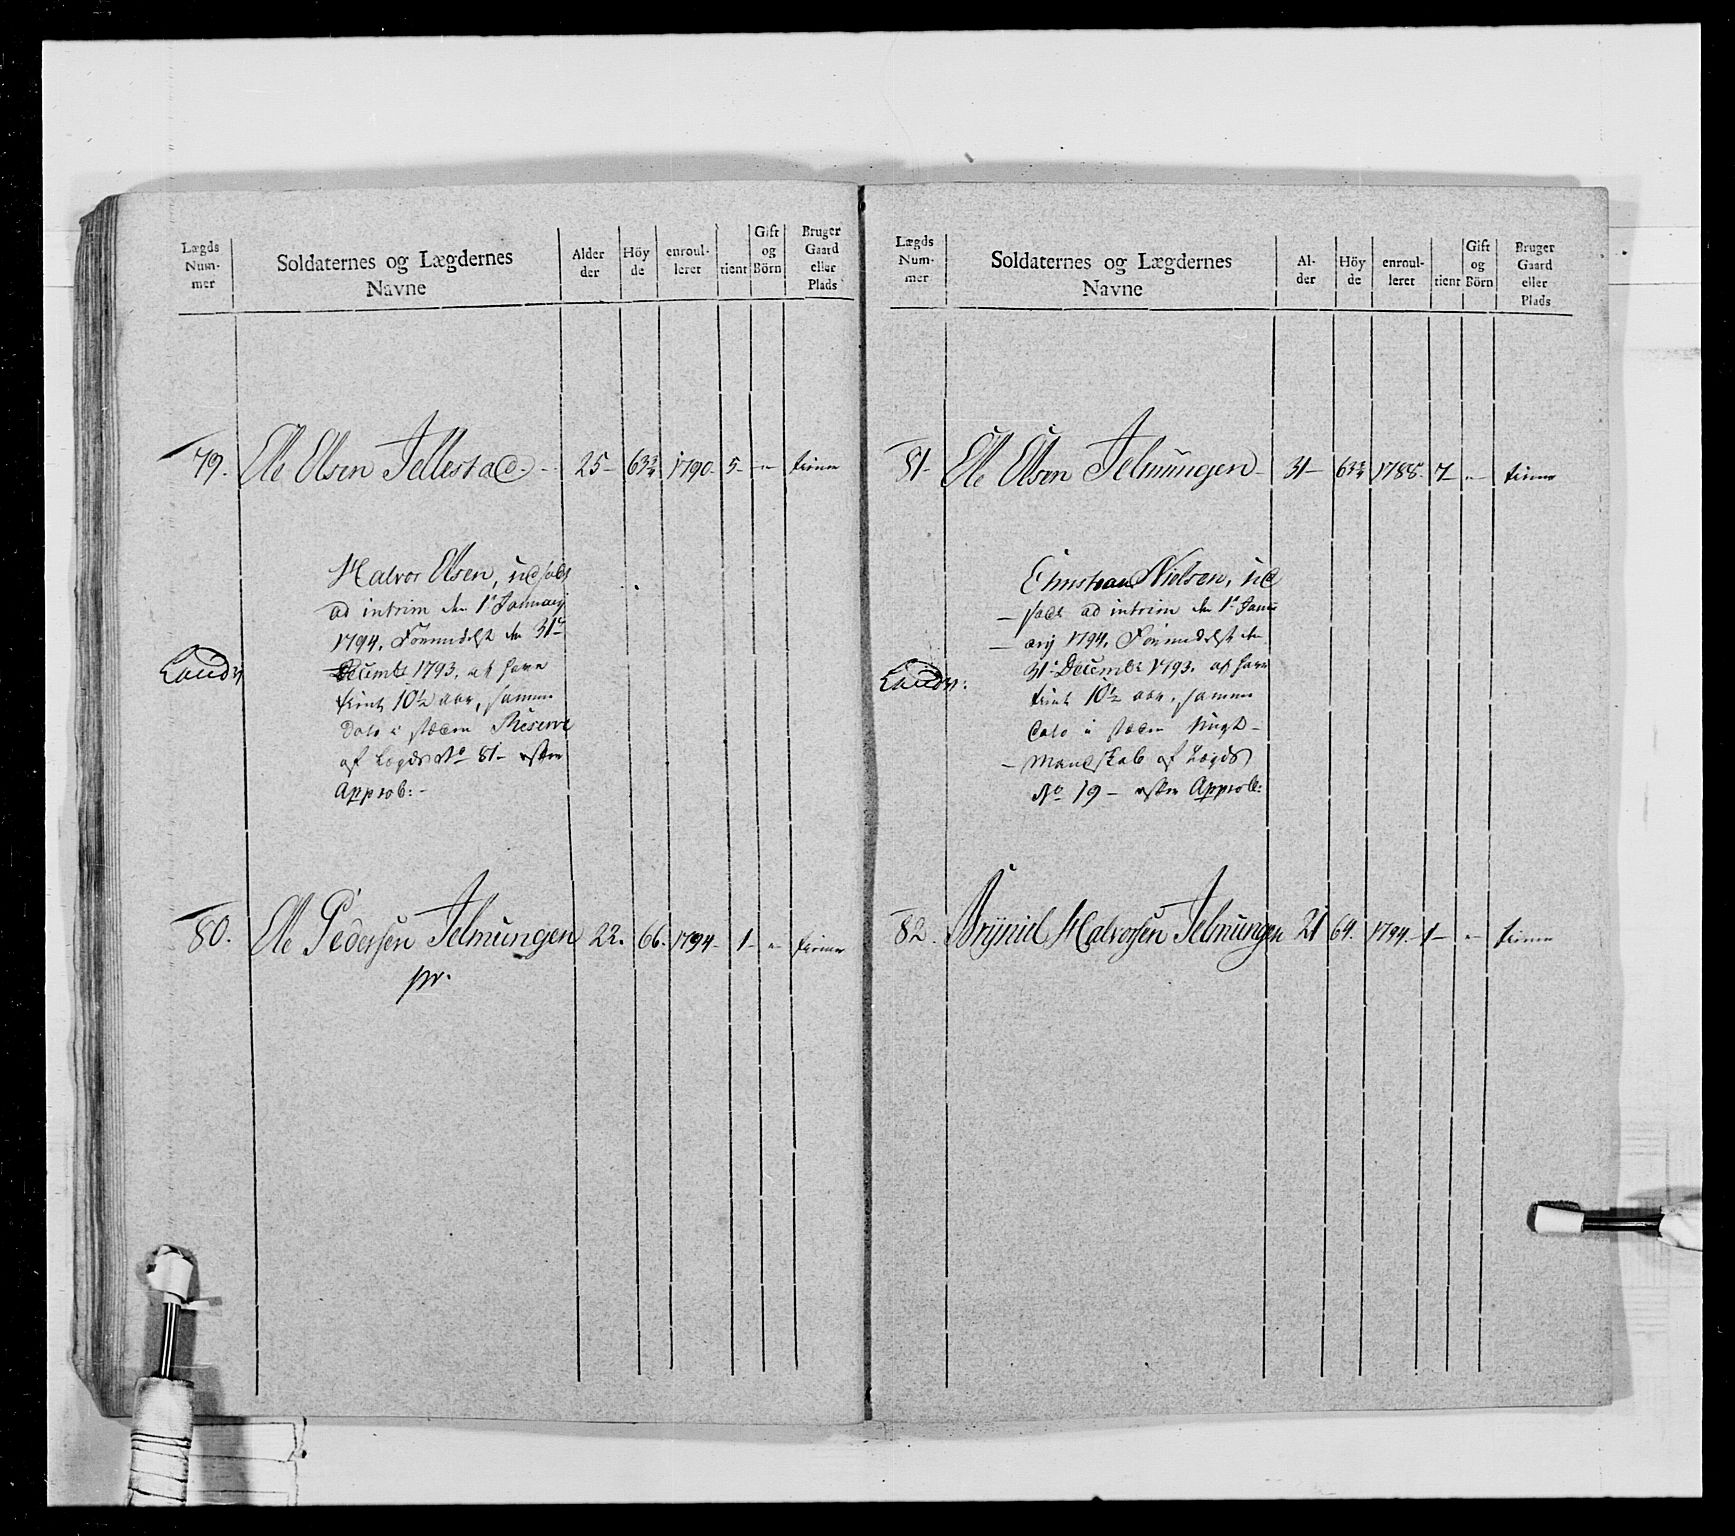 Lægds
Num-
mer
Soldaternes og Lægdernes
Navne
Alder
der
Höy
de
enroul-
leret
tient
Gift
og
Börn
Bruger
Gaard
eller
Plads
79. Ole Olsen Tellestad 25 63¾ 1790. 5 " tiener
Halvor Olsen, udsadt
ad intrim den 1e Januarij
1794, Formedelst den 31te
Decembr 1793, at have
tient 10½ aar, samme
Dato i stæden Reserve
af Lægds No 81 efter
Approb:
Landv:
80. Ole Pedersen Jelmungen 22. 66. 1794 1 " tiener
pr.
Lægds
Num-
mer
Soldaternes og Lægdernes
Navne
Al-
der
Höy
de
enroul-
leret
tient
Gift
og
Börn
Bruger
Gaard
eller
Plads
81 Ole Olsen Jelmungen 31 63¾ 1788. 7 " tiener
Christian Nielsen, ud
sadt ad intrim den 1e Janu
arij 1794, Formedelst den
31te Decembr 1793, at have
tient 10½ aar, samme
Dato i stæden
Mandskab af Lægds
No 19 efter Approb:
Landv:
82. Brÿniel Halvorsen Jelmungen 21 64. 1794. 1 " tiener